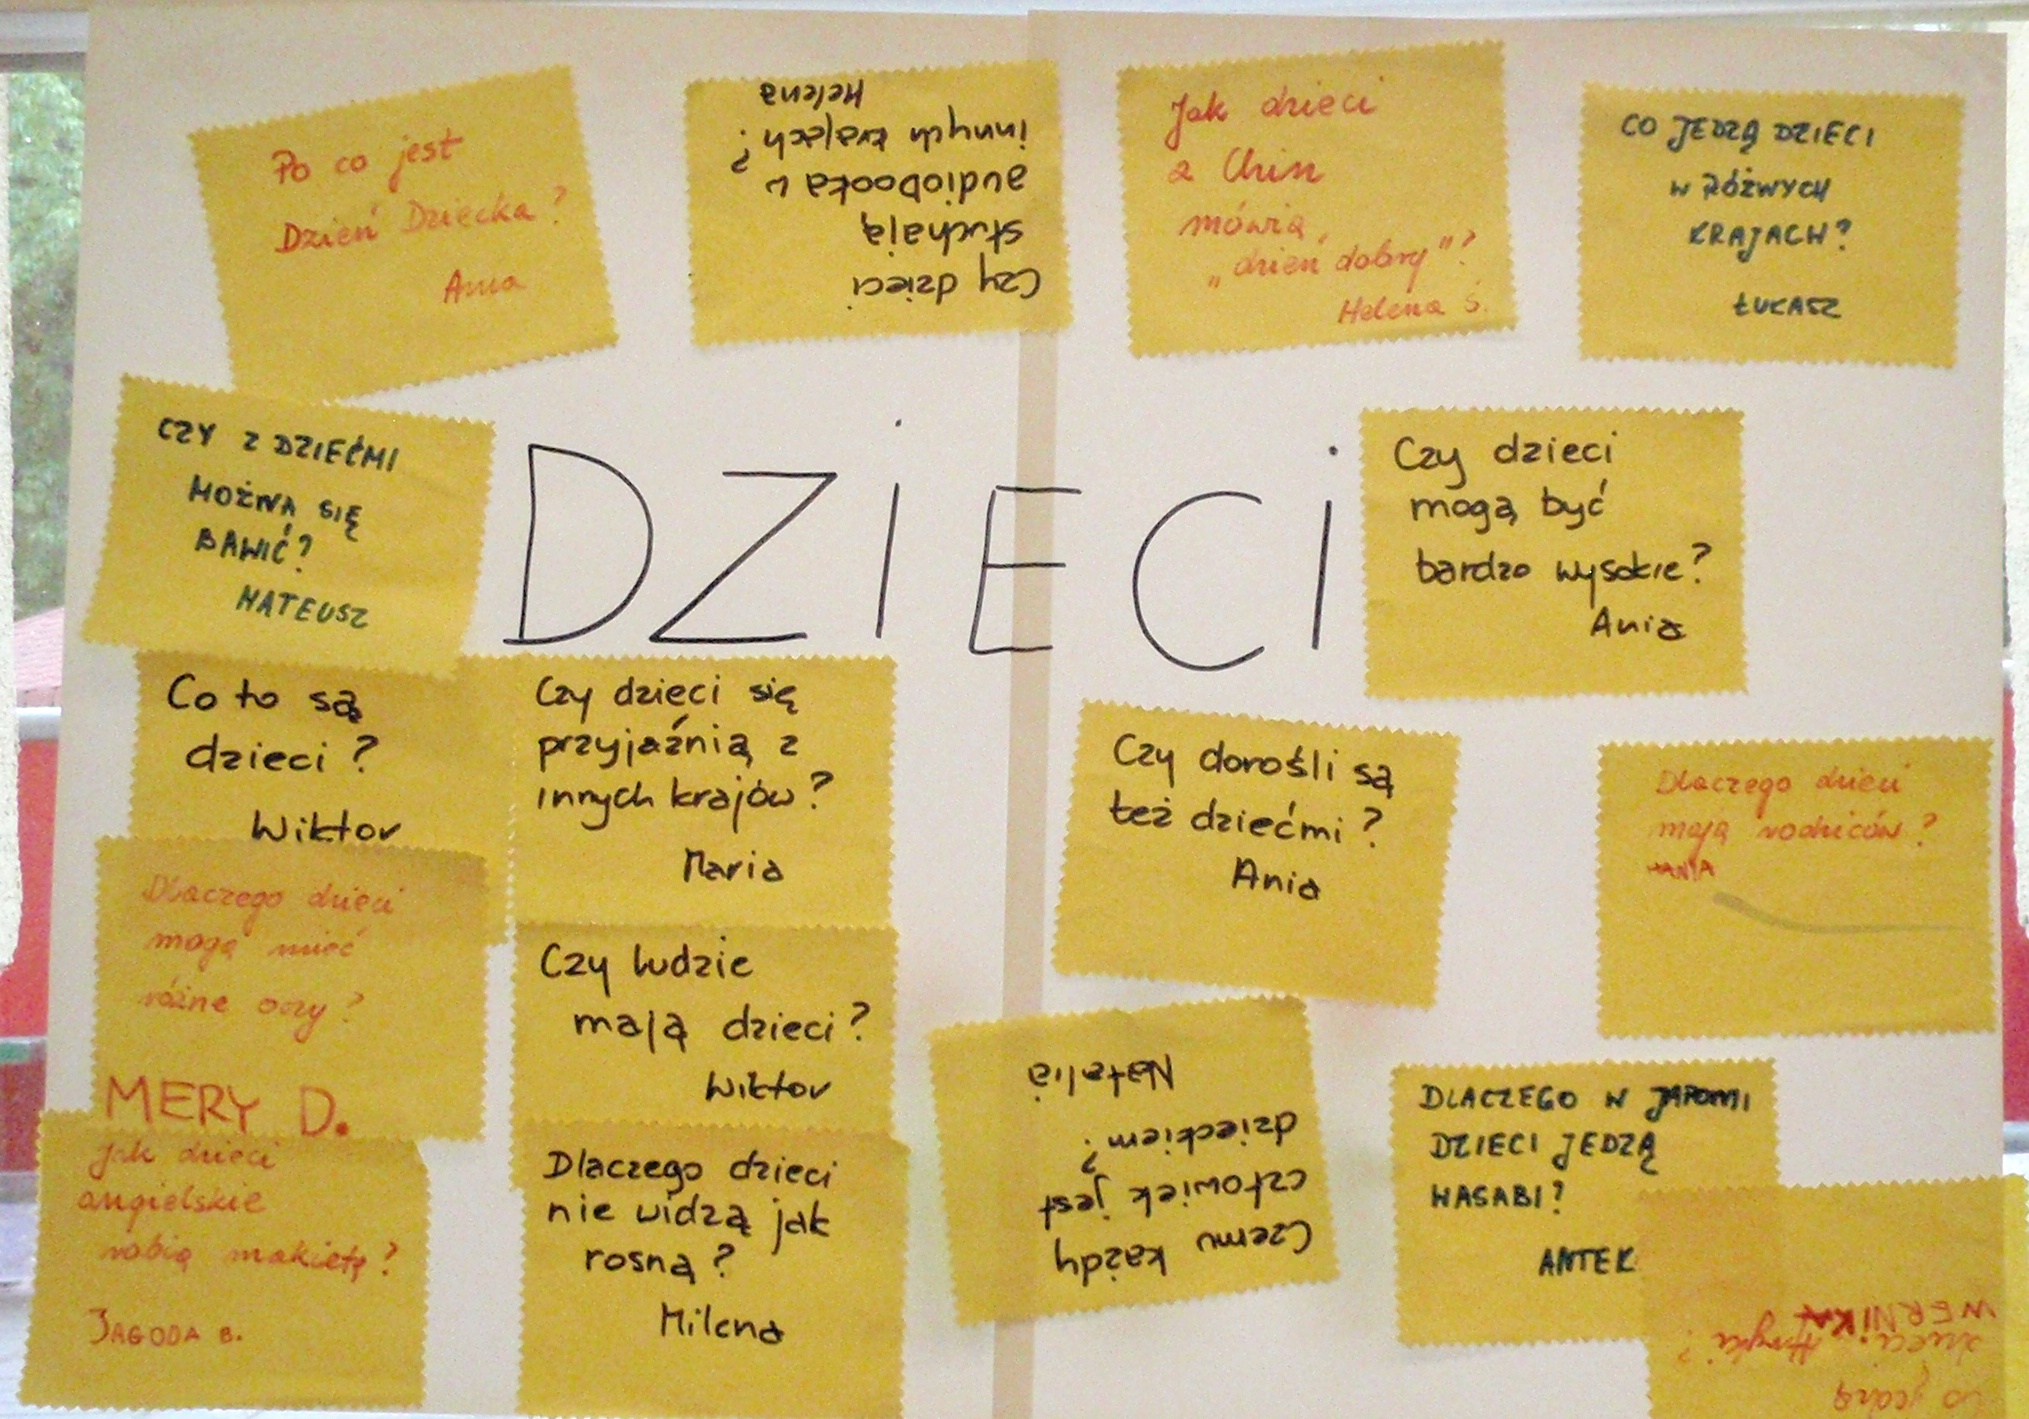 Po co jest
Dzień Dziecka?
Ania
Czy dzieci
słuchają
audiobooka w
innych krajach?
Helena
Jak dzieci
z Chin
mówią
"dzień dobry"?
Helena Ś.
CO JEDZĄ DZIECI
W RÓŻNYCH
KRAJACH?
ŁUKASZ
CZY Z DZIEĆMI
MOŻNA SIĘ
BAWIĆ?
MATEUSZ
DZIECI
Czy dzieci
mogą być
bardzo wysokie?
Ania
Co to są
dzieci?
Wiktor
Czy dzieci się
przyjaźnią z
innych krajów?
Maria
Czy dorośli są
też dziećmi?
Ania
Dlaczego dzieci
mają rodziców?
HANIA
Dlaczego dzieci
mogą mieć
różne oczy?
MERY D.
Czy ludzie
mają dzieci?
Wiktor
Czemu każdy
człowiek jest
dzieckiem?
Natalia
DLACZEGO W JAPONII
DZIECI JEDZĄ
WASABI?
ANTEK
Jak dzieci
angielskie
robią makietę?
JAGODA B.
Dlaczego dzieci
nie widzą jak
rosną?
Milena
Co jedzą
dzieci Afryki?
WERNIKA